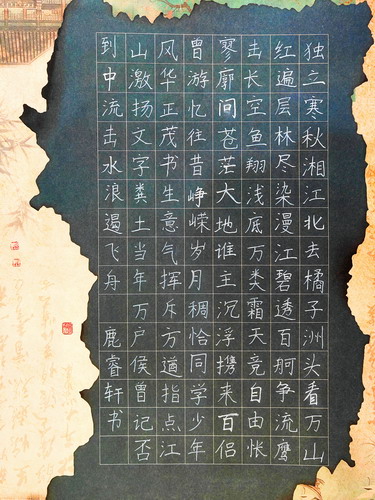 独立寒秋湘江北去橘子洲头看万山
红遍层林尽染漫江碧透百舸争流鹰
击长空鱼翔浅底万类霜天竞自由怅
寥廓问苍茫大地谁主沉浮携来百侣
曾游忆往昔峥嵘岁月稠恰同学少年
风华正茂书生意气挥斥方遒指点江
山激扬文字粪土当年万户侯曾记否
到中流击水浪遏飞舟 鹿睿轩书